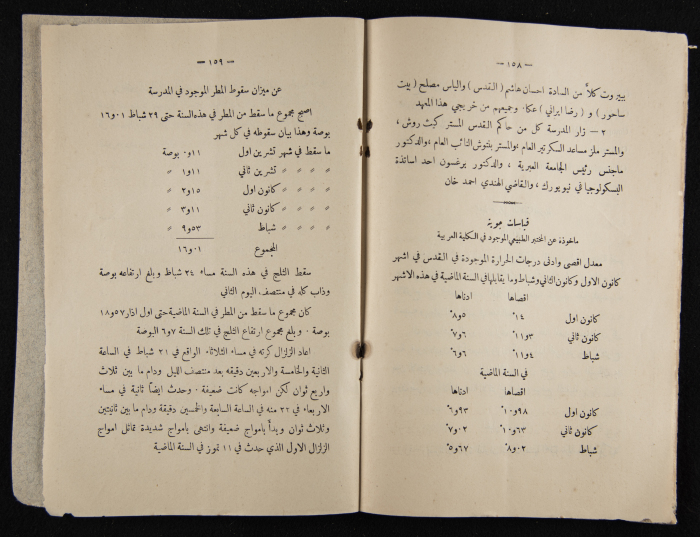 — ١٥٨ —
بيروت كلاً من السادة احسان هاشم ( القدس ) والياس مصلح ( بيت
ساحور ) و ( رضا ايراني ) عكا. وجميعهم من خريجي هذا المعهد
٢ — زار المدرسة كل من حاكم القدس المستر كيث روش ،
والمستر ملز مساعد السكرتير العام ، والمستر بنتوش النائب العام ، والدكتور
ماجنس رئيس الجامعة العبرية ، والدكتور برغسون احد اساتذة
البسكولوجيا في نيويورك ، والقاضي الهندي احمد خان
قياسات جوية
مأخوذة عن المختبر الطبيعي الموجود في الكلية العربية
معدل اقصى وادنى درجات الحرارة الموجودة في القدس في اشهر
كانون الاول وكانون الثاني وشباط وما يقابلها في السنة الماضية في هذه الاشهر
اقصاها ادناها
كانون اول ١٤° ٥و٨°
كانون ثاني ٣و١١° ٧و٦°
شباط ٤و١١° ٦و٦°
في السنة الماضية
اقصاها ادناها
كانون اول ٩٨و١٠° ٩٣و٦°
كانون ثاني ٦٣و١٠° ٠٢و٧°
شباط ٠٢و٨° ٦٧و٥°
— ١٥٩ —
عن ميزان سقوط المطر الموجود في المدرسة
اصبح مجموع ما سقط من المطر في هذه السنة حتى ٢٩ شباط ٠١و١٦
بوصة وهذا بيان سقوطه في كل شهر
ما سقط في شهر تشرين اول ١١و٠ بوصة
〃 〃 〃 〃 تشرين ثاني ١١و١ 〃
〃 〃 〃 〃 كانون اول ١٥و٢ 〃
〃 〃 〃 〃 كانون ثاني ١١و٣ 〃
〃 〃 〃 〃 شباط ٥٣و٩ 〃
المجموع ٠١و١٦
سقط الثلج في هذه السنة مساء ٢٤ شباط وبلغ ارتفاعه بوصة
وذاب كله في منتصف اليوم الثاني
كان مجموع ما سقط من المطر في السنة الماضية حتى اول اذار ٥٧و١٨
بوصة . وبلغ مجموع ارتفاع الثلج في تلك السنة ٧و٦ البوصة
اعاد الزلزال كرته في مساء الثلاثاء الواقع في ٢١ شباط في الساعة
الثانية والخامسة والاربعين دقيقه بعد منتصف الليل ودام ما بين ثلاث
واربع ثوان لكن امواجه كانت ضعيفة . وحدث ايضاً ثانية في مساء
الاربعاء في ٢٢ منه في الساعة السابعة والخمسين دقيقة ودام ما بين ثانيتين
وثلاث ثوان وبدأ بامواج ضعيفة وانتهى بامواج شديدة تماثل امواج
الزلزال الاول الذي حدث في ١١ تموز في السنة الماضية